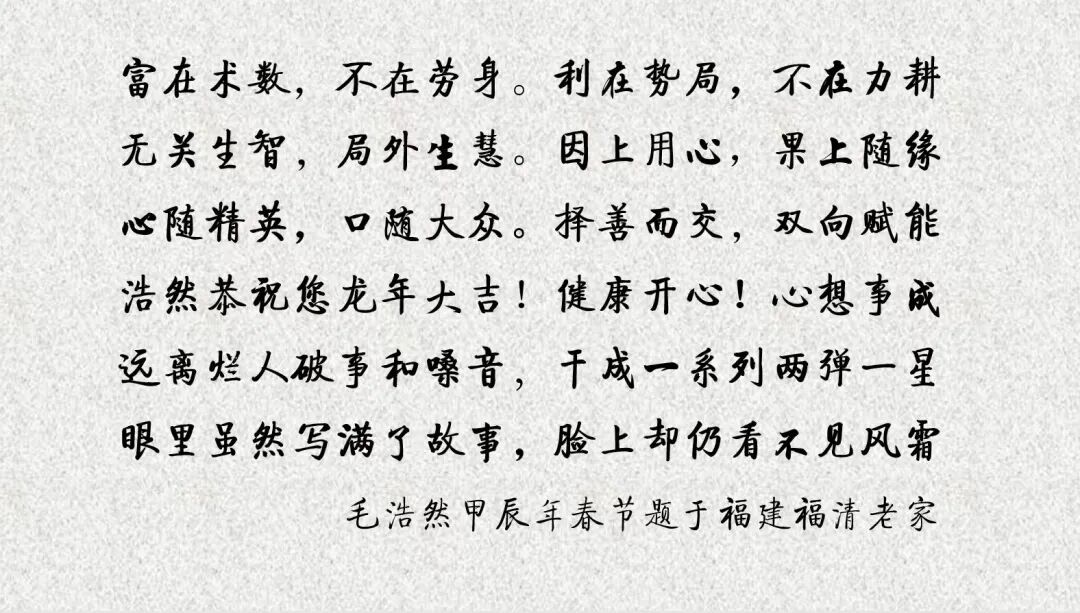 富在术数，不在劳身。利在势局，不在力耕
无关生智，局外生慧。因上用心，果上随缘
心随精英，口随大众。择善而交，双向赋能
浩然恭祝您龙年大吉！健康开心！心想事成
远离烂人破事和嗓音，干成一系列两弹一星
眼里虽然写满了故事，脸上却仍看不见风霜
毛浩然甲辰年春节题于福建福清老家